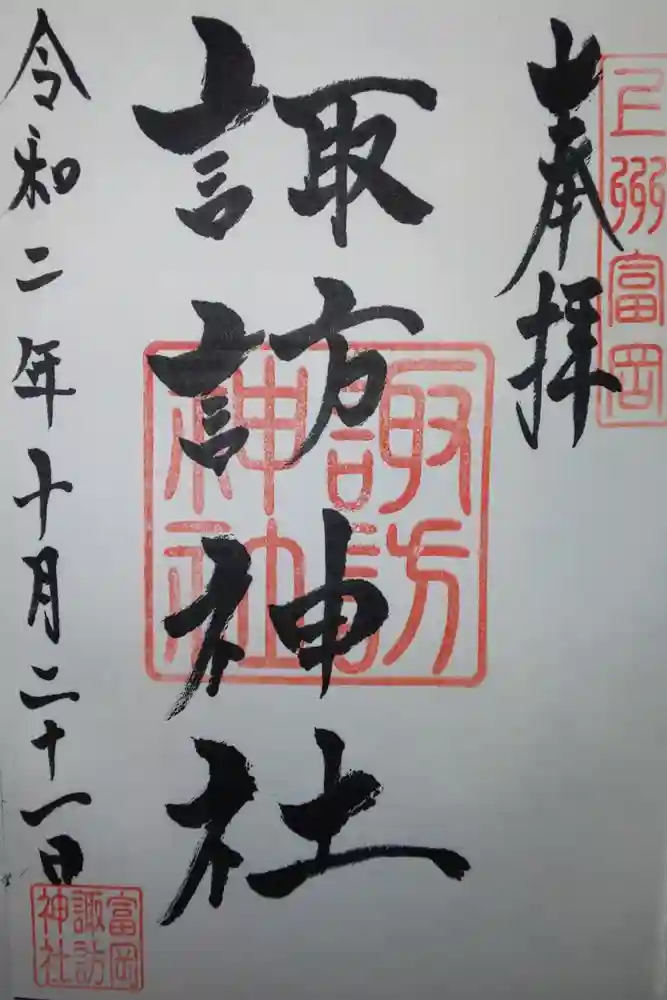 奉拝
上州富岡
諏訪神社
諏訪神社
令和二年十月二十一日
富岡
諏訪
神社